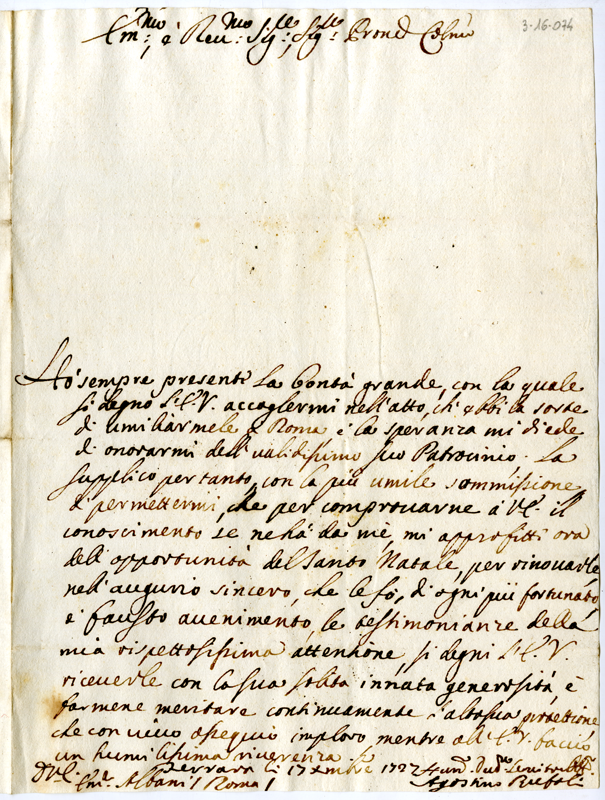 3-16-074
Em:mo e Reu:mo Sig:re, Sig:re Prone Colmo
Hò sempre presente la bontà grande, con la quale
si degnò l'E.V. accoglermi nell'atto, ch'ebbi la sorte
di umiliarmele à Roma e la speranza mi diede
di onorarmi dell'validissimo suo Patrocinio. La
supplico pertanto, con la più umile sommissione
di permettermi, che per comprovarne à V.E. il
conoscimento se ne hà da mè, mi approfitti ora
dell'opportunità del Santo Natale, per rinouarle
nell'augurio sincero, che le fò, di ogni più fortunato
e fausto auenimento, le testimonianze della
mia rispettosissima attentione, si degni l'E.V.
riceuerle con la sua solita innata generosità, è
farmene meritare continuamente l'alta sua protettione
che con uiuo ossequio imploro mentre all'E.V. faccio
un humilissima riuerenza
Ferrara li 17 Xmbre 1727
D.V.E.
Em: Albani / Roma /
Agostino